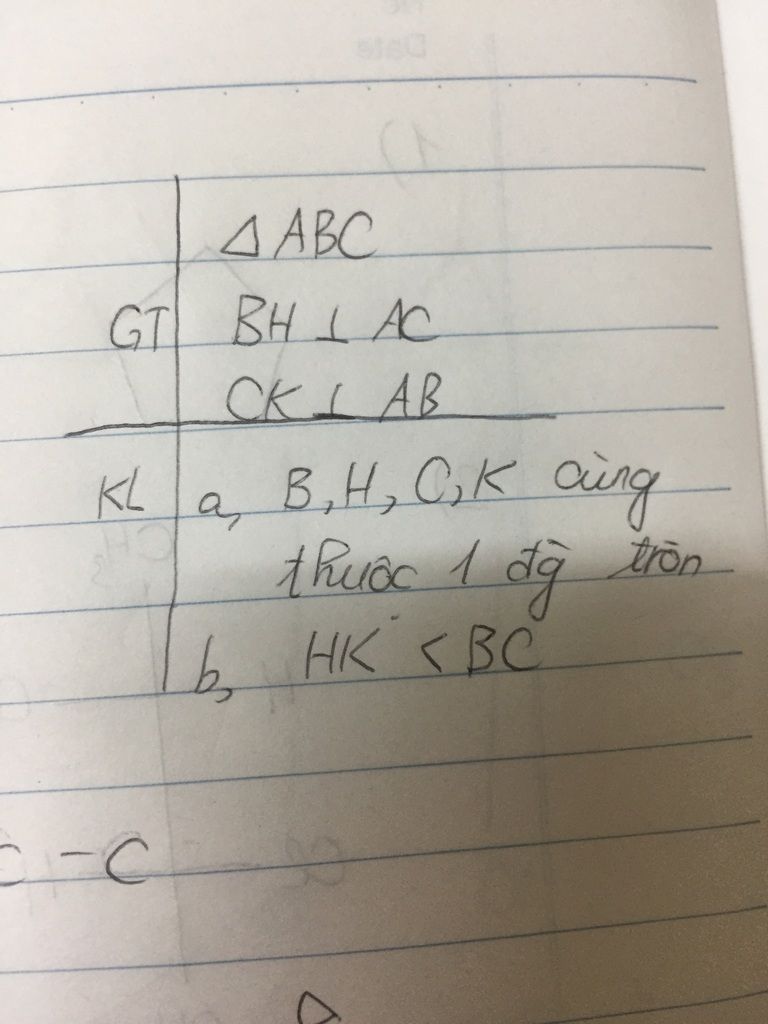 Δ ABC
GT BH ⊥ AC
CK ⊥ AB
KL a, B, H, C, K cùng
thuộc 1 đg̀ tròn
b, HK < BC
C - C